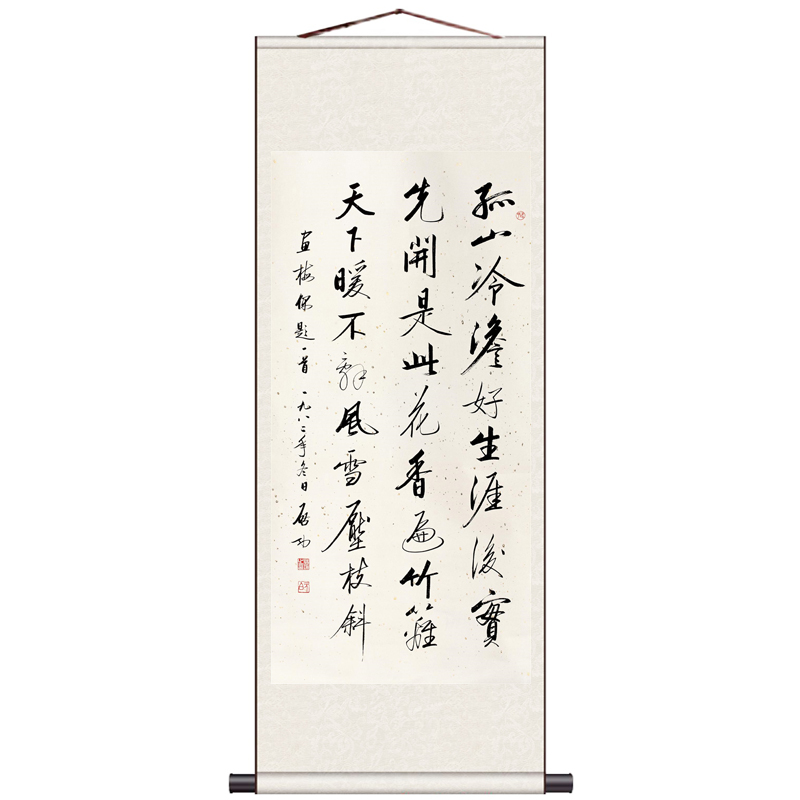 孤山冷澹好生涯後實
先開是此花香遍竹籬
天下暖不辭風雪壓枝斜
畫梅偶題一首 一九八二年冬日 啟功